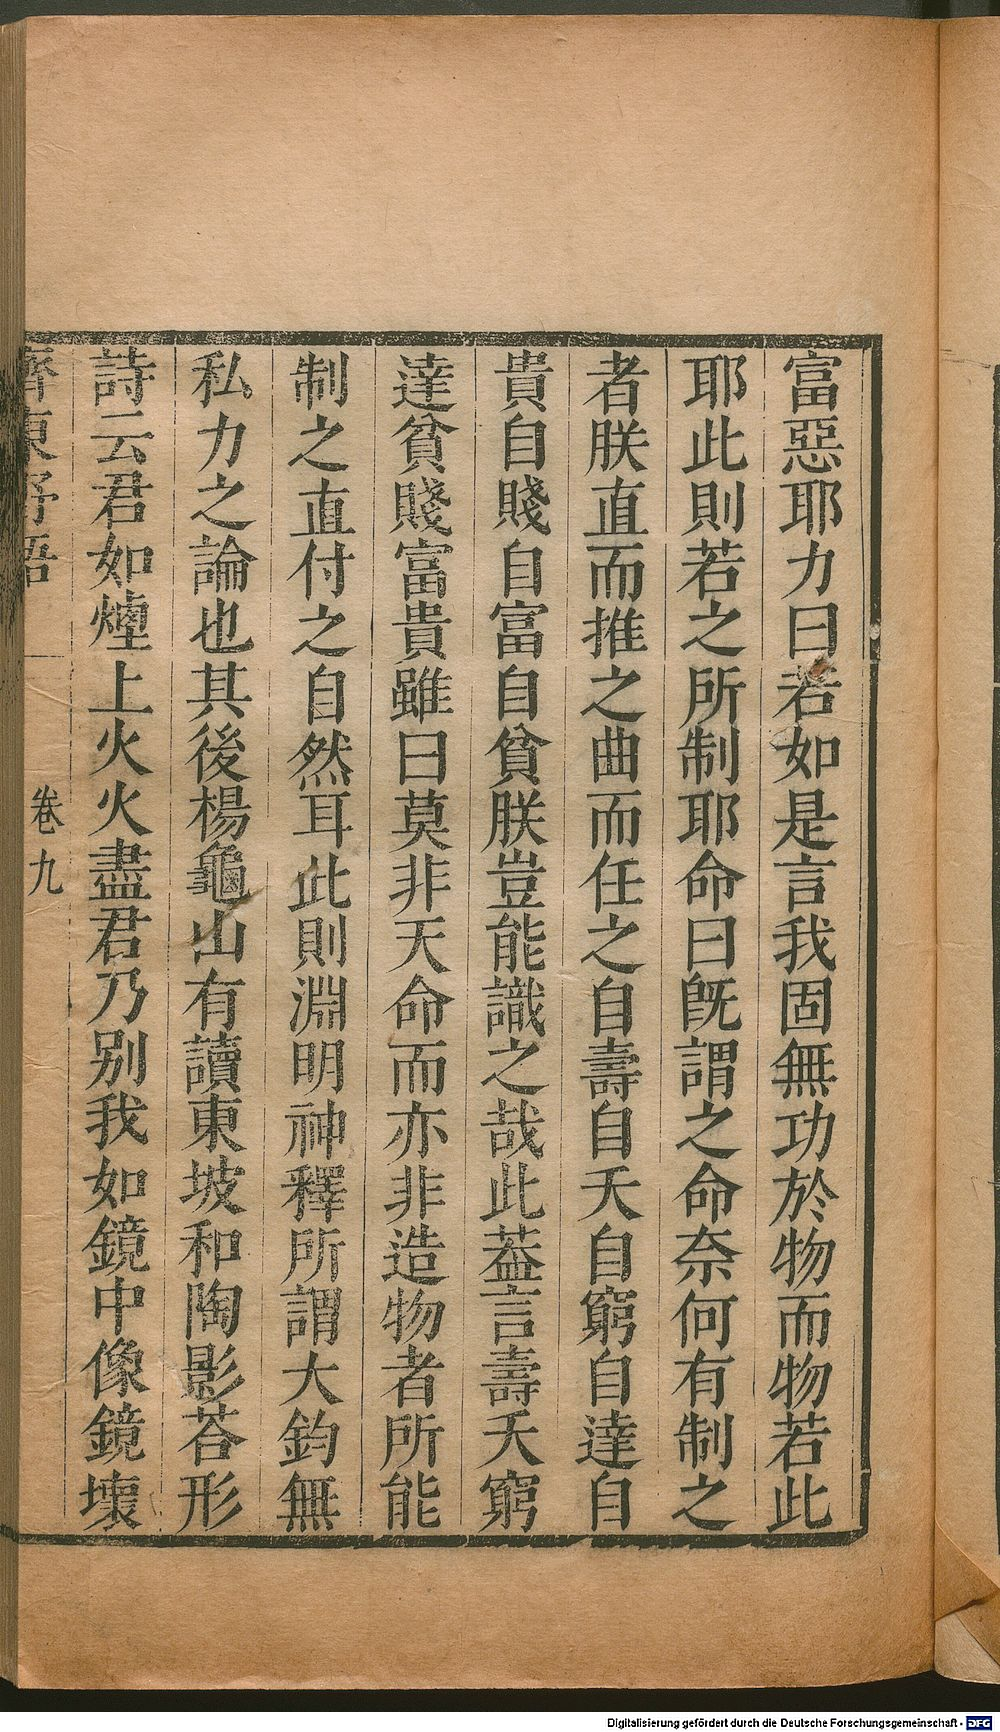 富惡耶力曰若如是言我固無功於物而物若此
耶此則若之所制耶命曰旣謂之命奈何有制之
者朕直而推之曲而任之自壽自夭自窮自達自
貴自賤自富自貧朕豈能識之哉此葢言壽夭窮
達貧賤富貴雖曰莫非天命而亦非造物者所能
制之直付之自然耳此則淵明神釋所謂大鈞無
私力之論也其後楊龜山有讀東坡和陶影荅形
詩云君如煙上火火盡君乃别我如鏡中像鏡壞
齊東野語
卷九
Digitalisierung gefördert durch die Deutsche Forschungsgemeinschaft - DFG